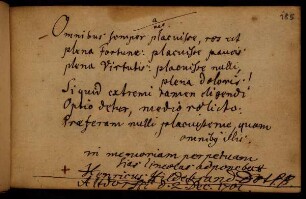 185
Omnibus semper placuisse, res est
plena Fortunæ: placuisse paucis
plena Virtutis: placuisse nulli,
plena Doloris!
Si quid extremi tamen eligendi
Optio detur, medio relicto:
Præferam nulli placuisse, quam
omnibus
in memoriam perpetuam
has lineolas adponebat
Henricus Hildebrand